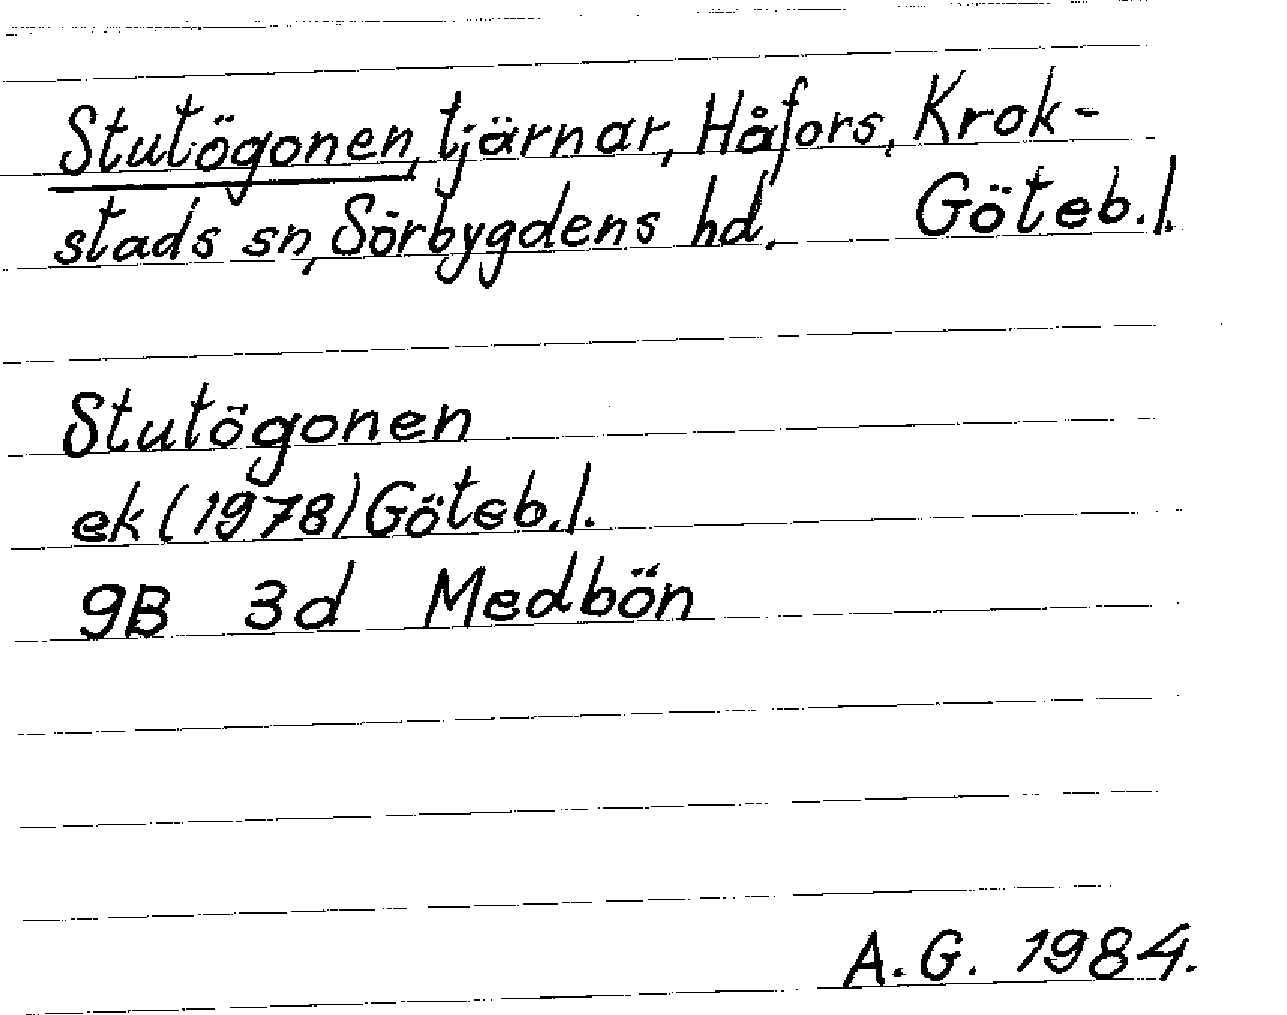 Stutögonen, tjärnar, Håfors, Krok-
stads sn, Sörbygdens hd. Göteb. l.
Stutögonen
ek (1978) Göteb. l.
9B 3d Medbön
A. G. 1984.